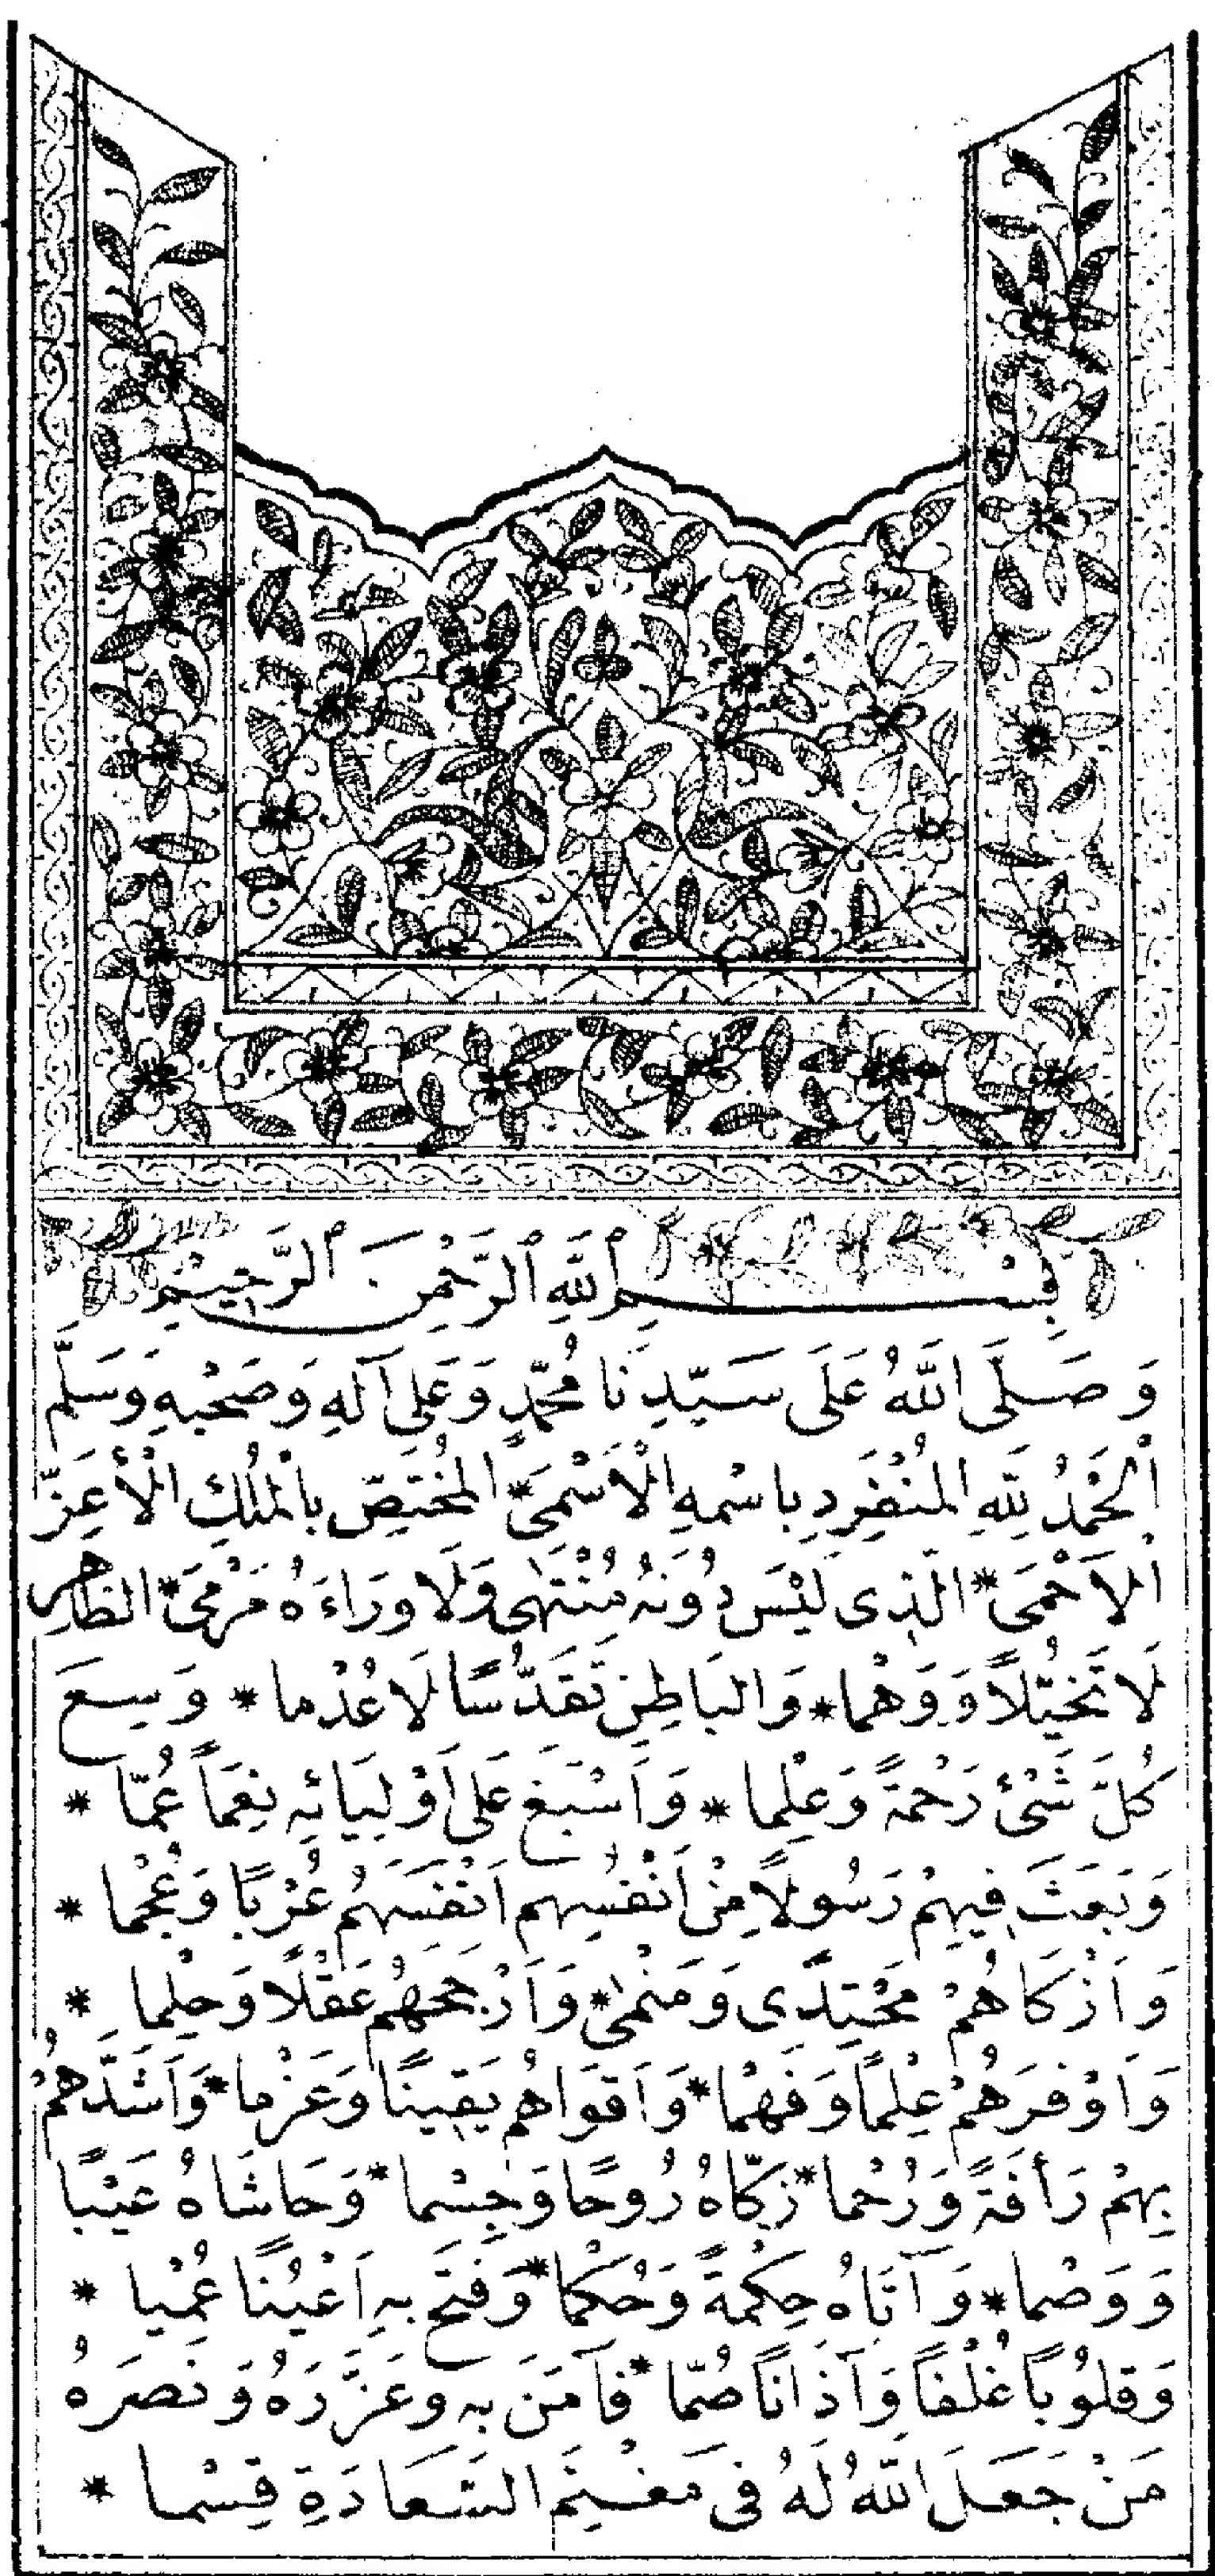 بِسْمِ اللَّهِ الرَّحْمٰنِ الرَّحِيْمِ
وَصَلَّى اللَّهُ عَلَى سَيِّدِنَا مُحَمَّدٍ وَعَلَى آلِهِ وَصَحْبِهِ وَسَلَّمَ
اَلْحَمْدُ لِلَّهِ المُنْفَرِدِ بِاسْمِهِ الْاَسْمَى * المُخْتَصِّ بِالْمُلْكِ الْأَعِزِّ
اْلاَحْمَى * الَّذِى لَيْسَ دُوْنَهُ مُنْتَهَى وَلَا وَرَاءَهُ مَرْمَى * الظَاهِرِ
لَا تَخَيُّلاً وَوَهْمَا * وَالبَاطِنِ تَقَدُّسًا لَا عُدْمَا * وَسِعَ
كُلَّ شَىْءٍ رَحْمَةً وَعِلْمَا * وَاَسْبَغَ عَلَى اَوْلِيَائِهِ نِعَماً عُمَّا *
وَبَعَثَ فِيهِمْ رَسُولاً مِنْ اَنْفُسِهِم اَنْفَسَهُمْ عُرْبًا وَعُجْمَا *
وَاَزْكَاهُمْ مَحْتِدًى وَمَنْمَى * وَاَرْجَحَهُمْ عَقْلًا وَحِلْمَا *
وَاَوْفَرَهُمْ عِلْمًا وَفَهْمَا * وَاَقْوَاهُمْ يَقِينًا وَعَزْمَا * وَاَشَدَّهُمْ
بِهِمْ رَأفَةً وَرُحْمَا * زَكَّاهُ رُوحًا وَجِسْمَا * وَحَاشَاهُ عَيْبًا
وَوَصْمَا * وَآتَاهُ حِكْمَةً وَحُكْمَا * وَفَتَحَ بِهِ اَعْيُنًا عُمْيَا *
وَقُلُوبًا غُلْفًا وَآذَانًا صُمَّا * فَآمَنَ بِهِ وَعَزَّرَهُ وَنَصَرَهُ
مَنْ جَعَلَ اللَّهُ لَهُ فِى مَغْنَمِ السَّعَادَةِ قِسْمَا *